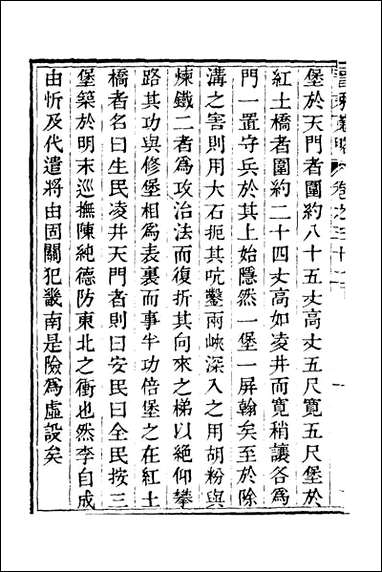 堡於天門者圍約八十五丈高丈五尺寬五尺堡於
紅土橋者圍約二十四丈高如凌井而寬稍讓各爲
門一置守兵於其上始隱然一堡一屏翰矣至於除
溝之害則用大石扼其吭鑿兩峽深入之用胡粉與
煉鐵二者爲攻治法而復折其向來之梯以絕仰攀
路其功與修堡相爲表裏而事半功倍堡之在紅土
橋者名曰生民凌井天門者則曰安民曰全民按三
堡築於明末巡撫陳純德防東北之衝也然李自成
由忻及代遣將由固關犯畿南是險爲虛設矣